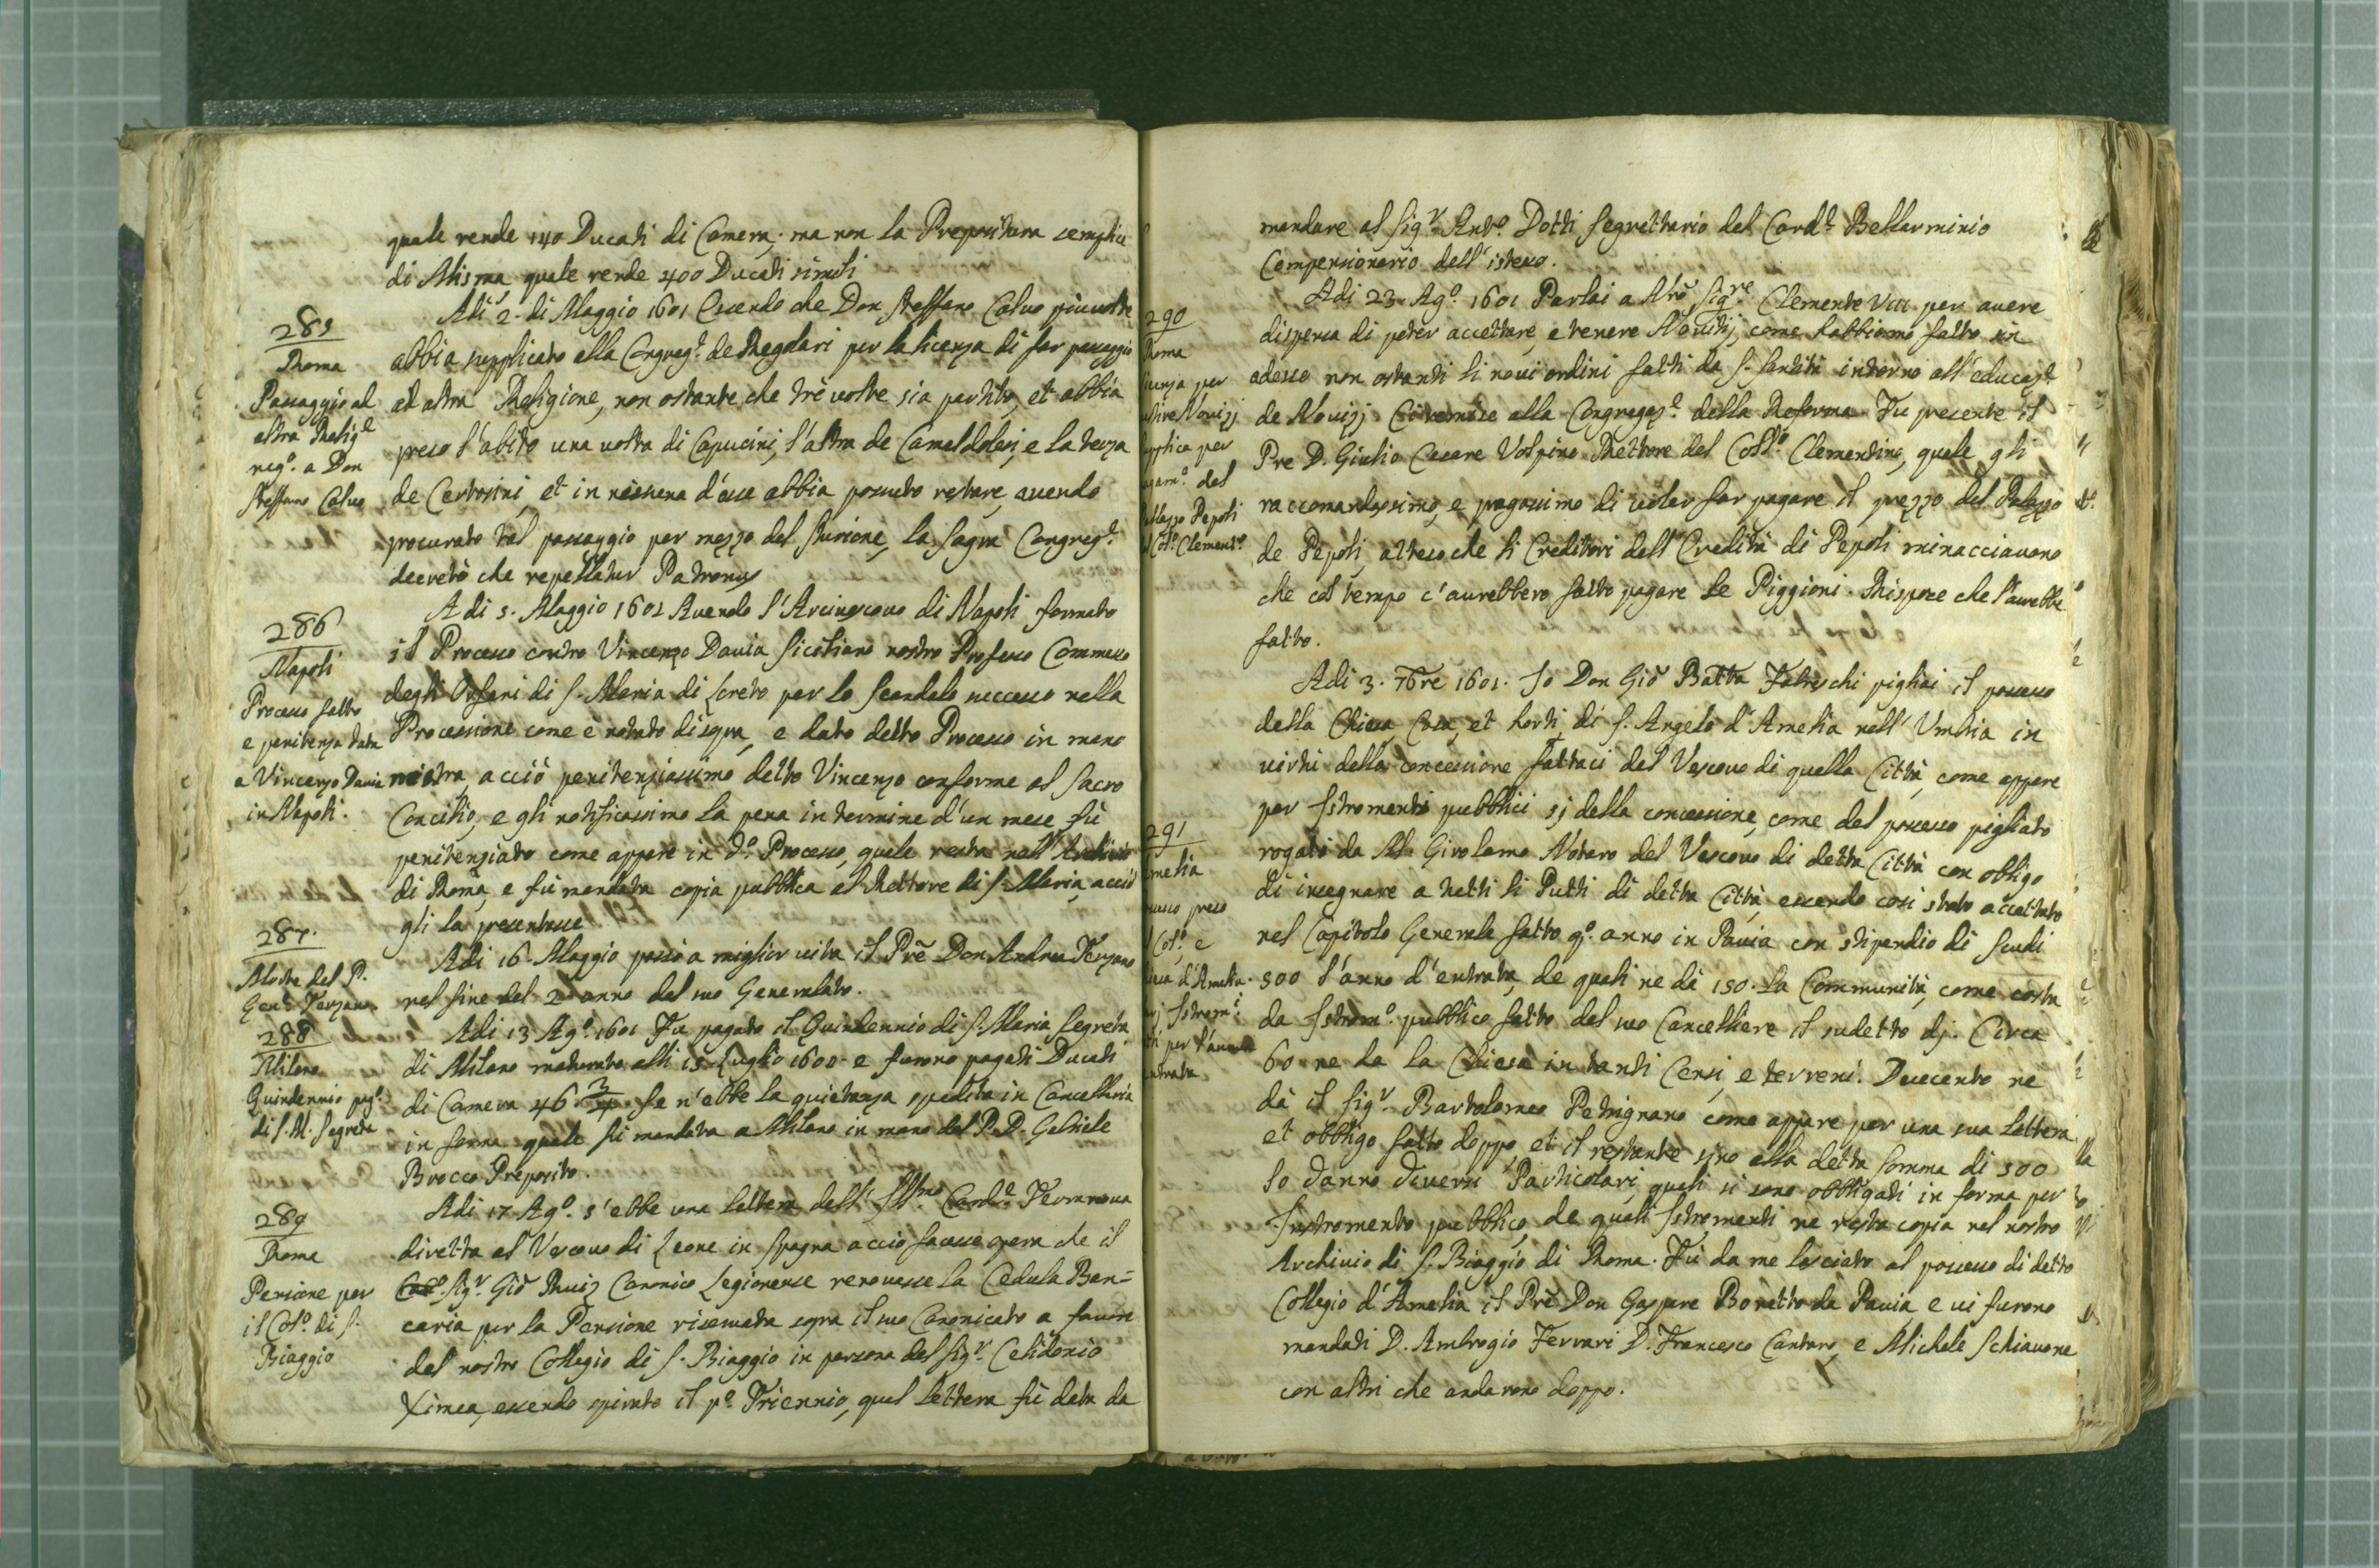 quale rende 140 Ducati di Camera, ma non la Prepositura semplice
di Misma quale rende 400 Ducati simili
285
Roma
Passaggio al
altra Relig.e
neg.o a Don
Steffano Calvo
Adi 2. di Maggio 1601 Essendo che Don Steffano Calvo piuvolte
abbia supplicato alla Congreg.e de Regolari per la licenza di far passaggio
ad altra Religione, non ostante che trè volte sia partito, et abbia
preso l'abito una volta di Capucini, l'altra de Camaldolesi, e la terza
de Certosini, et in nissuna d'esse abbia possuto restare, avendo
procurato tal passaggio per mezzo del Aurione, la Sagra Congreg.e
decretò che repellatur Patronus
286
Napoli
Processo fatto
e penitenza data
a Vincenzo Davia
in Napoli.
A di 5. Maggio 1601 Avendo l'Arcivescovo di Napoli formato
il Processo contro Vincenzo Davia Siciliano nostro Professo Commesso
degli Orfani di S. Maria di Loreto per lo Scandalo successo nella
Processione come è notato disopra, e dato detto Processo in mano
nostra, acciò penitenziassimo detto Vincenzo conforme al Sacro
Concilio, e gli notificassimo la pena in termine d'un mese fù
penitenziato come appare in d.o Processo, quale resta nell'Archivio
di Roma, e fù mandata copia pubblica al Rettore di S. Maria, acciò
gli la presentasse
287.
Morte del P.
Gen.e Terzano
Adi 16. Maggio passò a miglior vita il Prē Don Andrea Terzano
nel fine del 2.o anno del suo Generalato.
288
Milano
Quindennio pag.o
di S. M. Segreta
Adi 13 Ag.o 1601 Fu pagato il Quindennio di S. Maria Segreta
di Milano maturato alli 15 Luglio 1600. e furono pagati Ducati
di Camera 46 3/4 Se n'ebbe la quietanza spedita in Cancellaria
in forma quale fù mandata a Milano in mano del P. D. Gabriele
Brocco Preposito.
289
Roma
Pensione per
il Col.o di S.
Biaggio
Adi 17 Ag.o s'ebbe una lettera dell'Ill.mo Card.e Terranova
diretta al Vescovo di Leone in Spagna acciò facesse opera che il
Sig.r Giō Ruiz Canonico Legionense renovasse la Cedula Ban=
caria per la Pensione riservata sopra il suo Canonicato a favore
del nostro Collegio di S. Biaggio in persona del Sig.r Celidonio
Ximea, essendo spirato il p.o Triennio, qual lettera fù data da
mandare al Sig.r Ant.o Dotti Segrettario del Card.e Bellarminio
Compensionario dell'istesso.
290
Roma
Adi 23. Ag.o 1601 Parlai a Nrō Sig.re Clemente VIII per avere
dispensa di poter accettare, e tenere Novitij, come habbiamo fatto sin
adesso non ostanti li novi ordini fatti da S. Santità intorno all'educaz.e
de Novizj. Ci remise alla Congregaz.e della Reforma. Fu presente il
Pre D. Giulio Cesare Volpino Rettore del Coll.o Clementino, quale gli
raccomandassimo, e pregassimo di voler far pagare il prezzo del Palazzo
de Pepoli, atteso che li Creditori dell'Eredità di Pepoli minacciavano
che col tempo c'aurebbero fatto pagare le Piggioni. Rispose che l'aurebbe
fatto.
291
Adi 3. 7bre 1601. Io Don Giō Batta Fabreschi pigliai il possesso
della Chiesa, Casa, et horti di S. Angelo d'Amelia nell'Umbria in
virtù della concessione fattaci dal Vescovo di quella Città, come appare
per Istromenti pubblici sì della concessione, come del possesso pigliato
rogato da M. Girolamo Notaro del Vescovo di detta Città con obligo
di insegnare a tutti li Putti di detta Città, essendo così stato accettato
nel Capitolo Generale fatto q.o anno in Pavia con stipendio di Scudi
500 l'anno d'entrata, de quali ne dà 150. la Communità, come costa
da Istrom.o pubblico fatto dal suo Cancelliere il sudetto dj. Circa
60 ne da la Chiesa in tanti Censi, e terreni. Duecento ne
dà il Sig.r Bartolomeo Petrignano come appare per una sua lettera,
et obbligo fatto doppo, et il restante sino alla detta somma di 500
lo danno diversi Particolari, quali si sono obbligati in forma per
Instromento pubblico, de quali Istromenti ne resta copia nel nostro
Archivio di S. Biaggio di Roma. Fù da me lasciato al possesso di detto
Collegio d'Amelia il Prē Don Gaspare Boretto da Pavia, e vi furono
mandati D. Ambrogio Ferrari D. Francesco Cantaro, e Michele Schiavone
con altri che andarono doppo.